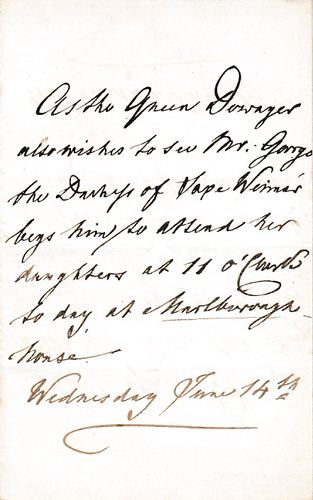 As the Queen Dowager
also wishes to see Mr. Gorgo
the Duchess of Saxe Weimar
begs him to attend her
daughters at 11 o'Clock
to day, at Marlborough
house.
Wednesday June 14th